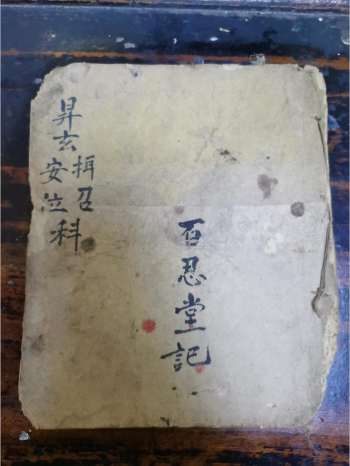 百忍堂記
昇玄挕召安位科